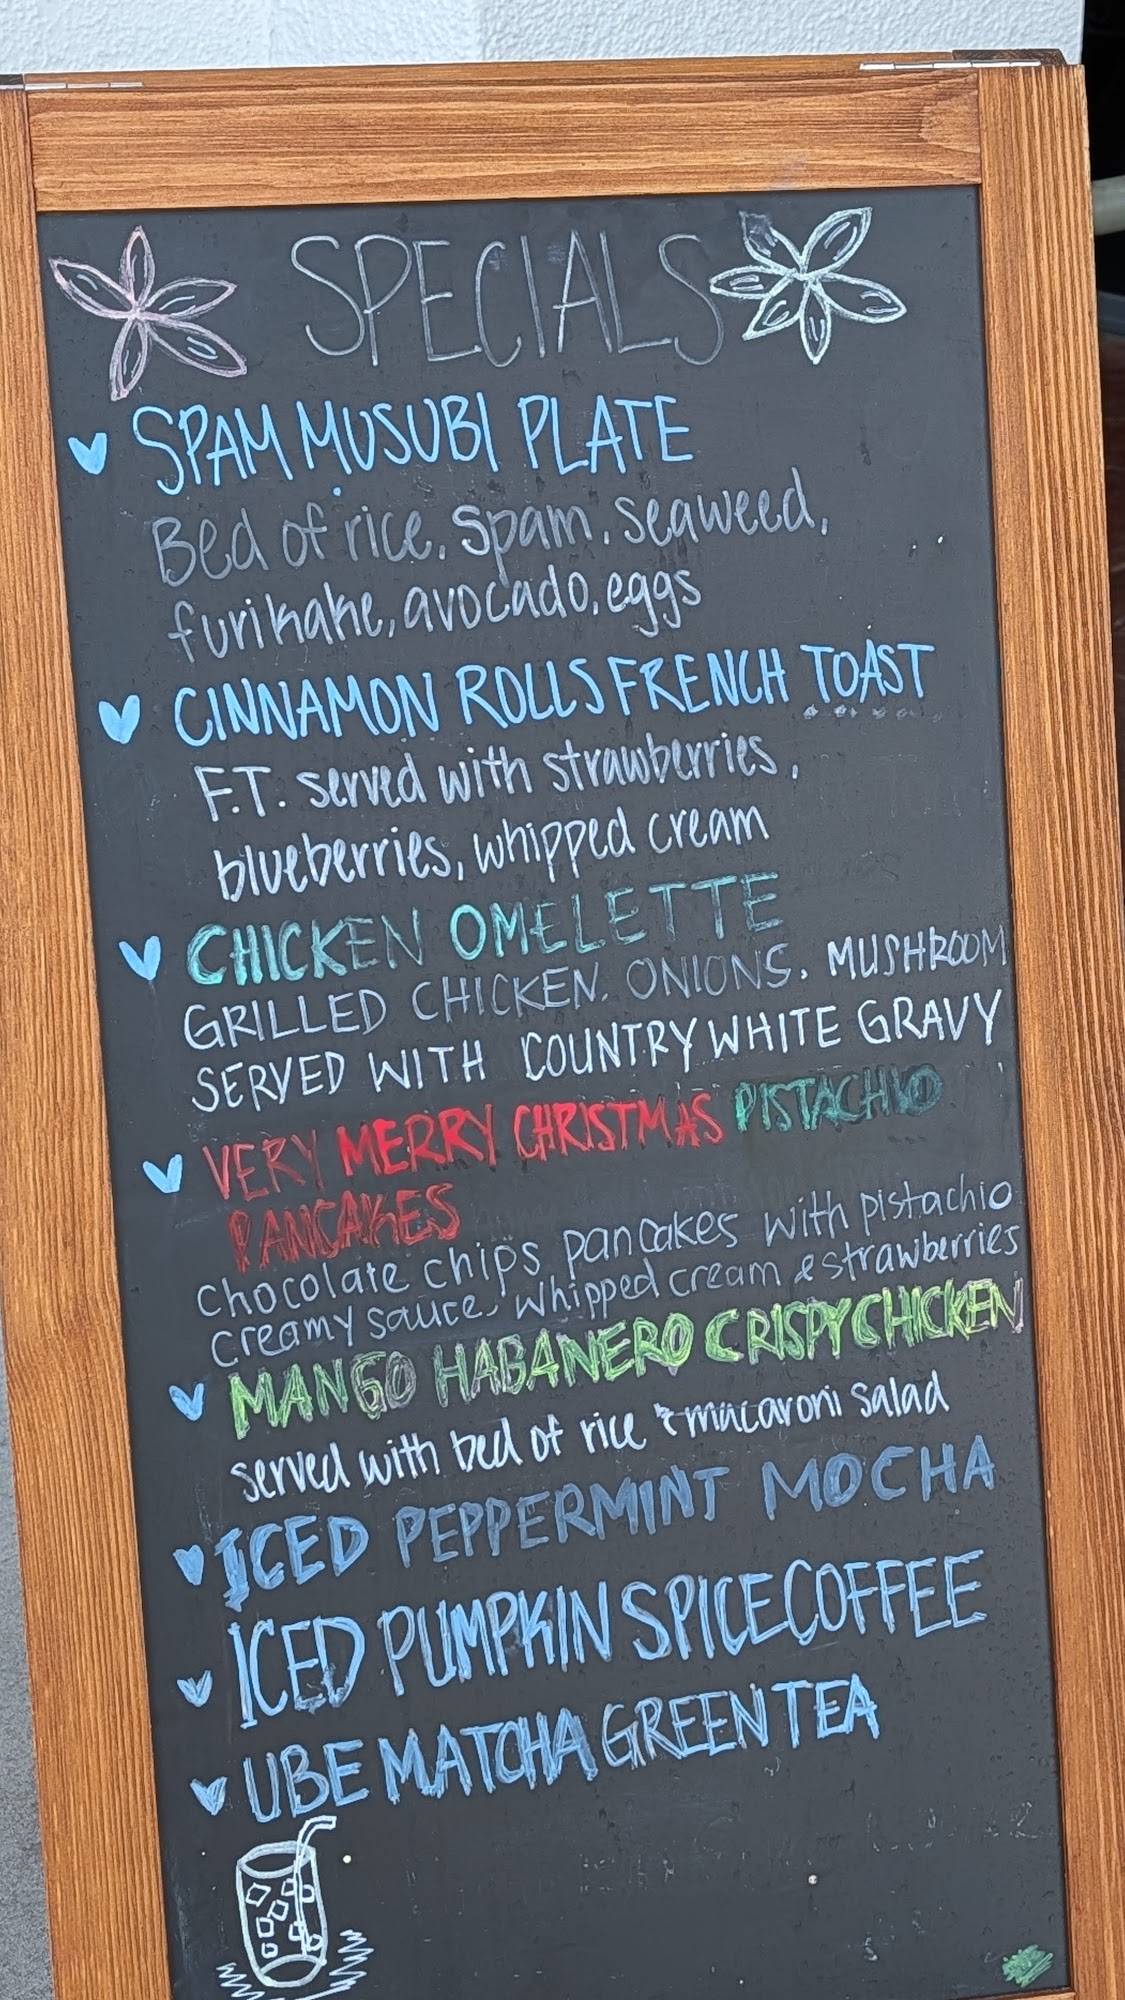 SPECIALS
SPAM MUSUBI PLATE
Bed of rice, Spam, seaweed,
furikake, avocado, eggs
CINNAMON ROLLS FRENCH TOAST
F.T. served with strawberries,
blueberries, whipped cream
CHICKEN OMELETTE
GRILLED CHICKEN, ONIONS, MUSHROOM
SERVED WITH COUNTRY WHITE GRAVY
VERY MERRY CHRISTMAS PISTACHIO
PANCAKES
chocolate chips pancakes with pistachio
creamy sauce, whipped cream & strawberries
MANGO HABANERO CRISPY CHICKEN
served with bed of rice & macaroni salad
ICED PEPPERMINT MOCHA
ICED PUMPKIN SPICE COFFEE
UBE MATCHA GREEN TEA